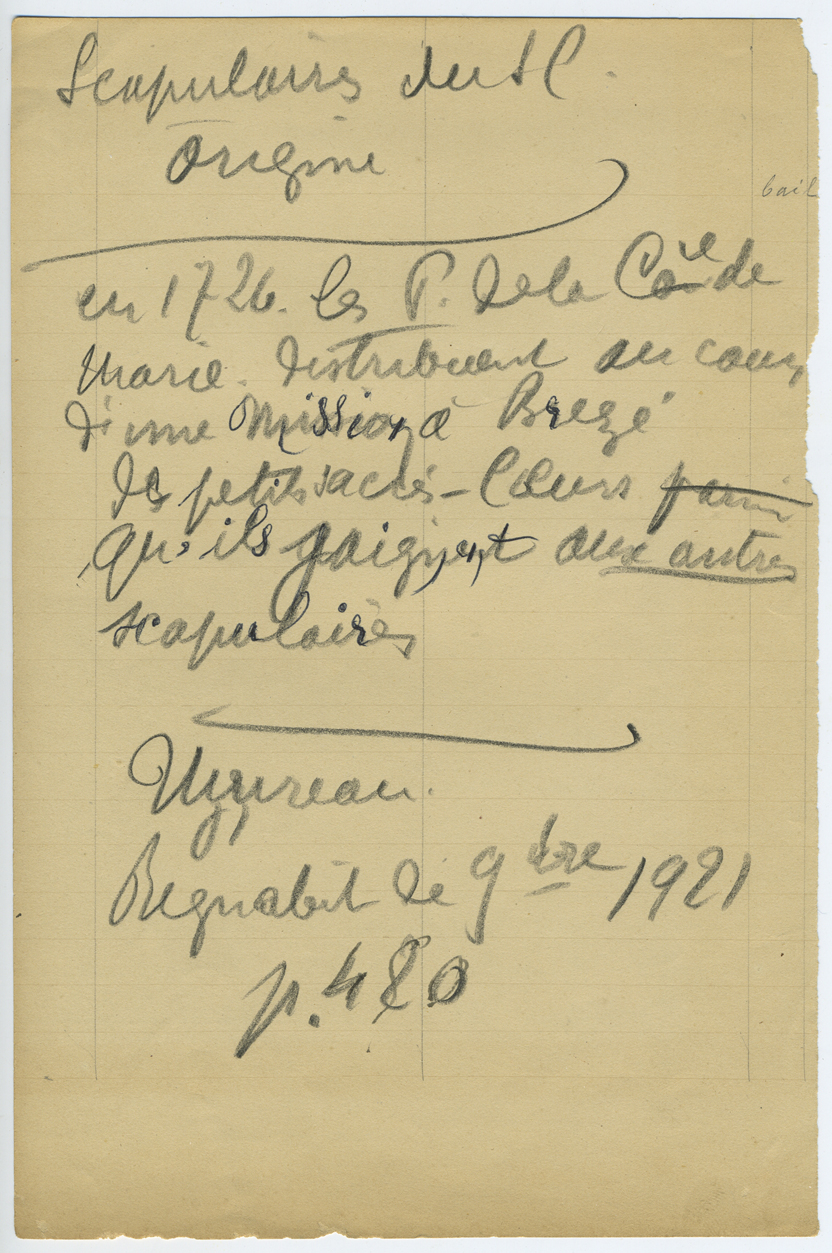 Scapulaires du S C.
Origine
bail
en 1726. les P. de la Cie de
Marie. distribuent au cours
d'une Mission à Brezé
des petits sacrés-Cœurs parmi
qu'ils joignent aux autres
scapulaires
Uzureau.
Regnabit de 9bre 1921
p. 480